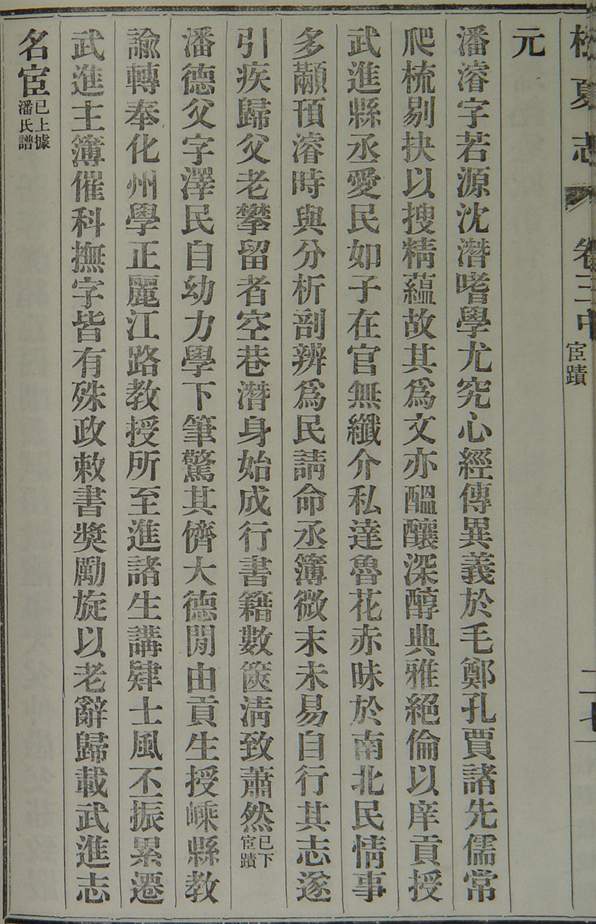 松夏志 卷三中 宦蹟
元
潘濬字若源沈潛嗜學尤究心經傳異義於毛鄭孔賈諸先儒常
爬梳剔抉以搜精蘊故其爲文亦醞釀深醇典雅絕倫以庠貢授
武進縣丞愛民如子在官無纖介私達魯花赤昧於南北民情事
多顢頇濬時與分析剖辨爲民請命丞簿微末未易自行其志遂
引疾歸父老攀留者空巷潛身始成行書籍數篋淸致蕭然已下宦蹟
潘德父字澤民自幼力學下筆驚其儕大德閒由貢生授嵊縣教
諭轉奉化州學正麗江路教授所至進諸生講肄士風丕振累遷
武進主簿催科撫字皆有殊政敕書獎勵旋以老辭歸載武進志
名宦已上據潘氏譜